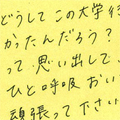 どうしてこの大学行
かったんだろう?
って思い出して、
ひと呼吸おい
頑張って下さい